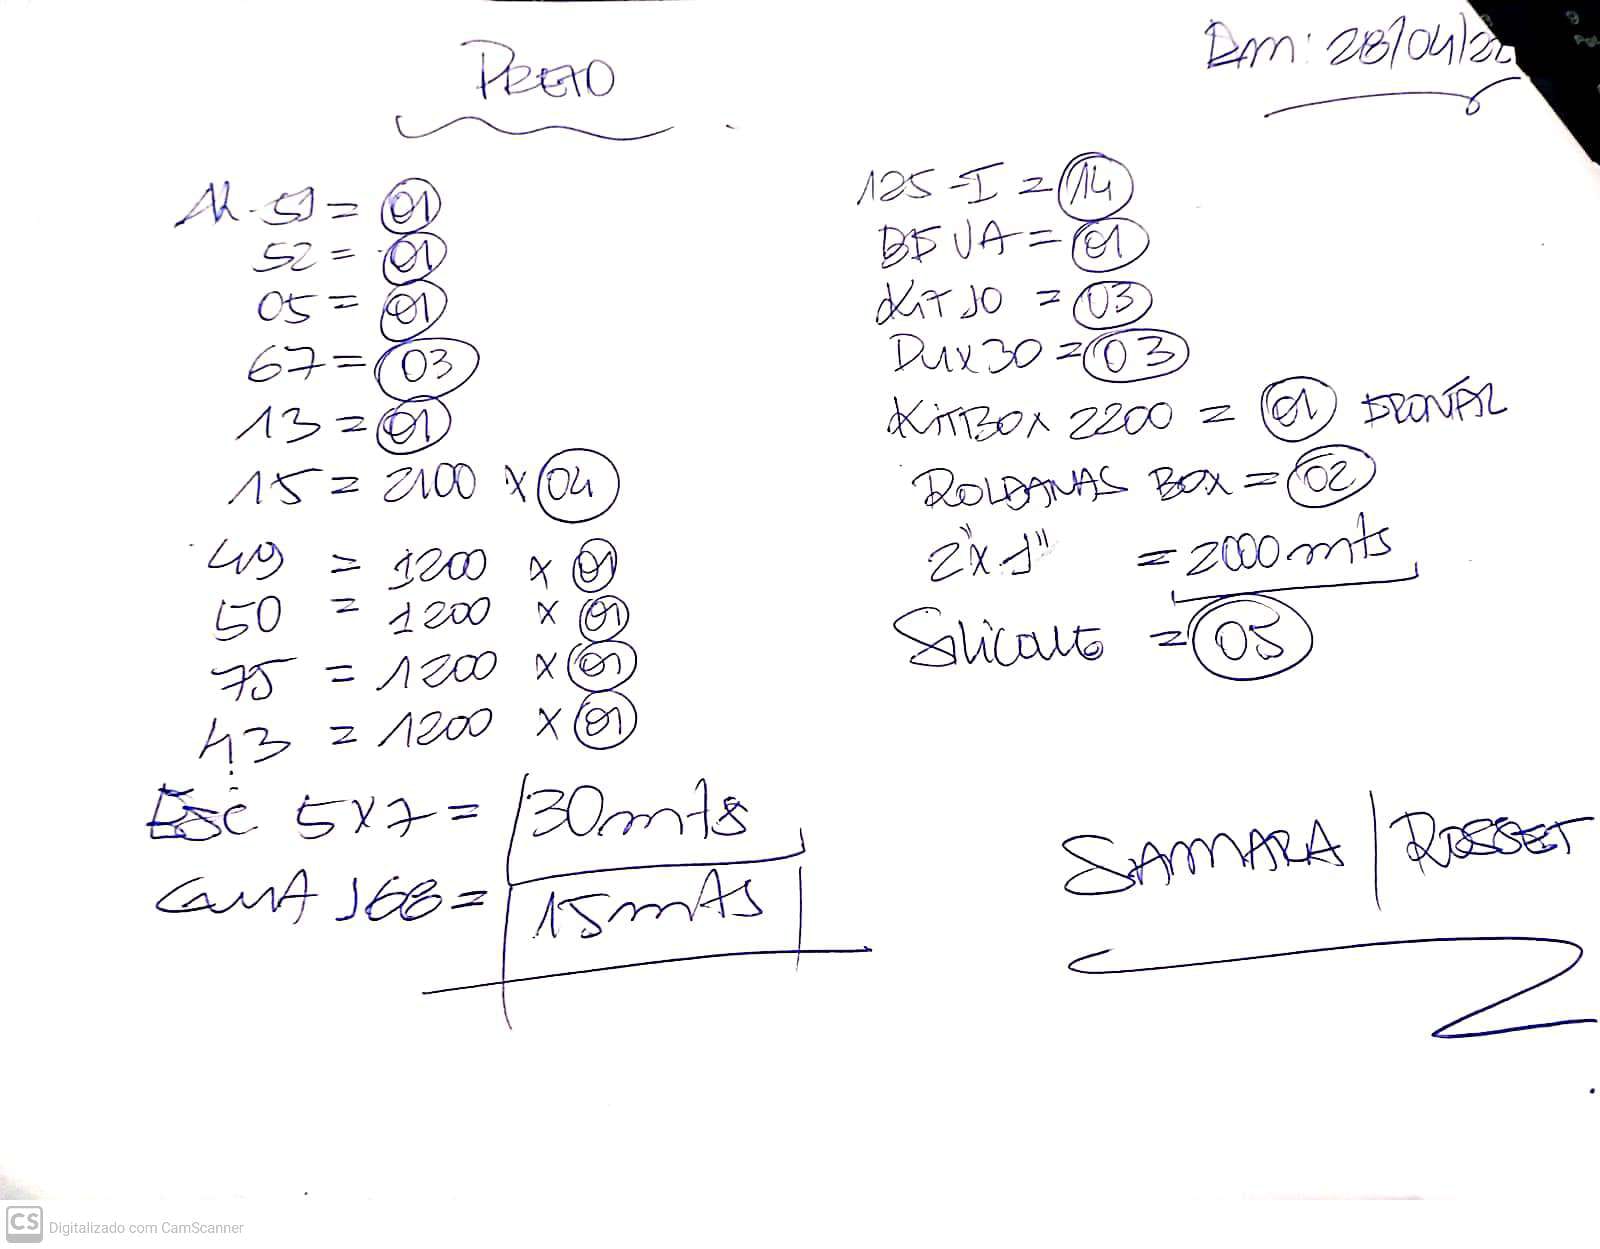 PRETO
Em: 28/04/22
AL-51 = 01
52 = 01
05 = 01
67 = 03
13 = 01
15 = 2100 x 04
49 = 1200 x 01
50 = 1200 x 01
75 = 1200 x 01
43 = 1200 x 01
Esc 5x7 = 30mts
GUIA 168 = 15mts
125-I = 14
BF VA = 01
KIT 10 = 03
DUX30 = 03
KIT BOX 2200 = 01 FRONTAL
ROLDANAS BOX = 02
2"x1" = 2000mts
Silicone = 05
SAMARA | ROSSET
CS Digitalizado com CamScanner